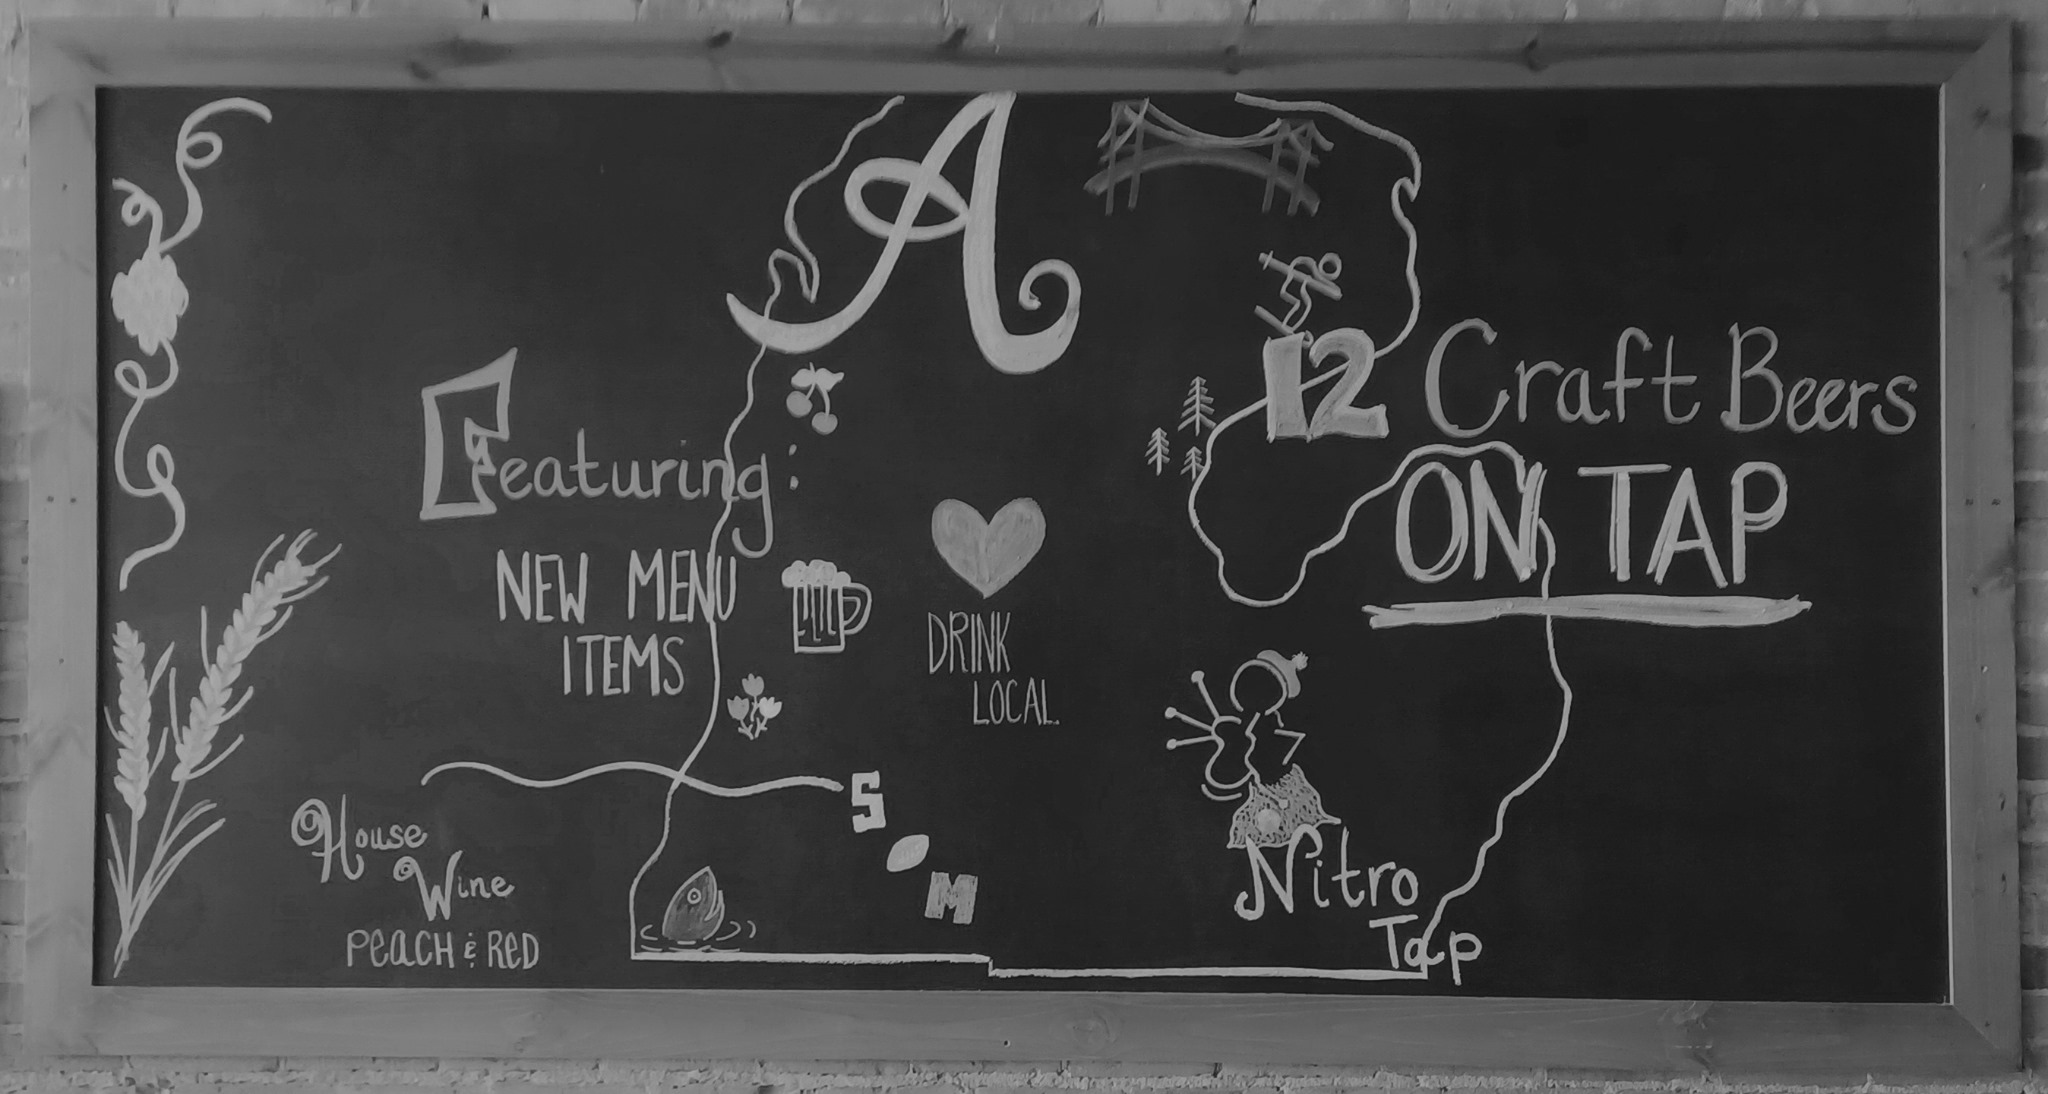 A
Featuring:
NEW MENU
ITEMS
House
Wine
PEACH & RED
DRINK
LOCAL
S
M
12 Craft Beers
ON TAP
Nitro
Tap